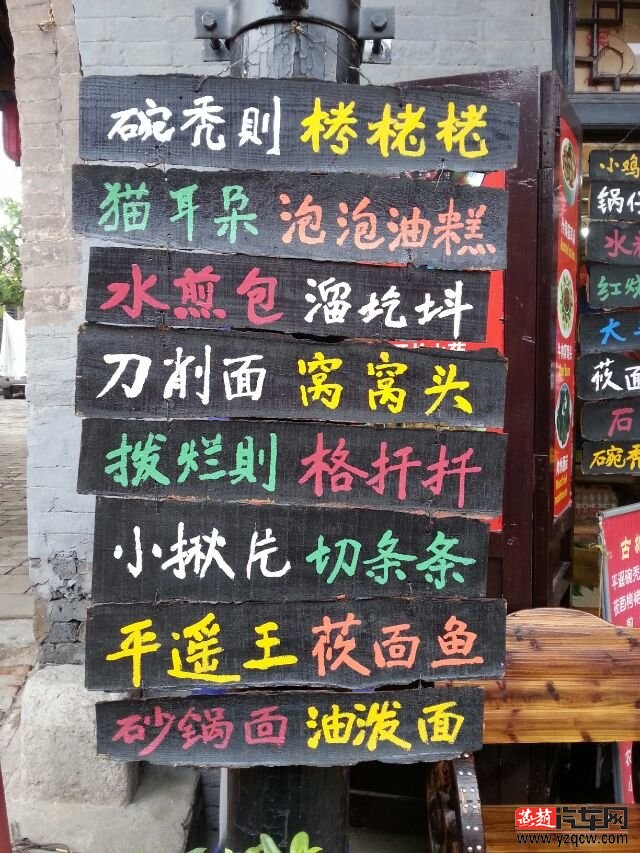 碗秃則 栲栳栳
猫耳朵 泡泡油糕
水煎包 溜圪抖
刀削面 窝窝头
拨烂则 格扦扦
小揪片 切条条
平遥王 莜面鱼
砂锅面 油泼面
小鸡
锅仔
水
红烧
大
莜面
石
碗秃
平遥碗秃
莜面栲栳
燕赵汽车网
www.yzqcw.com